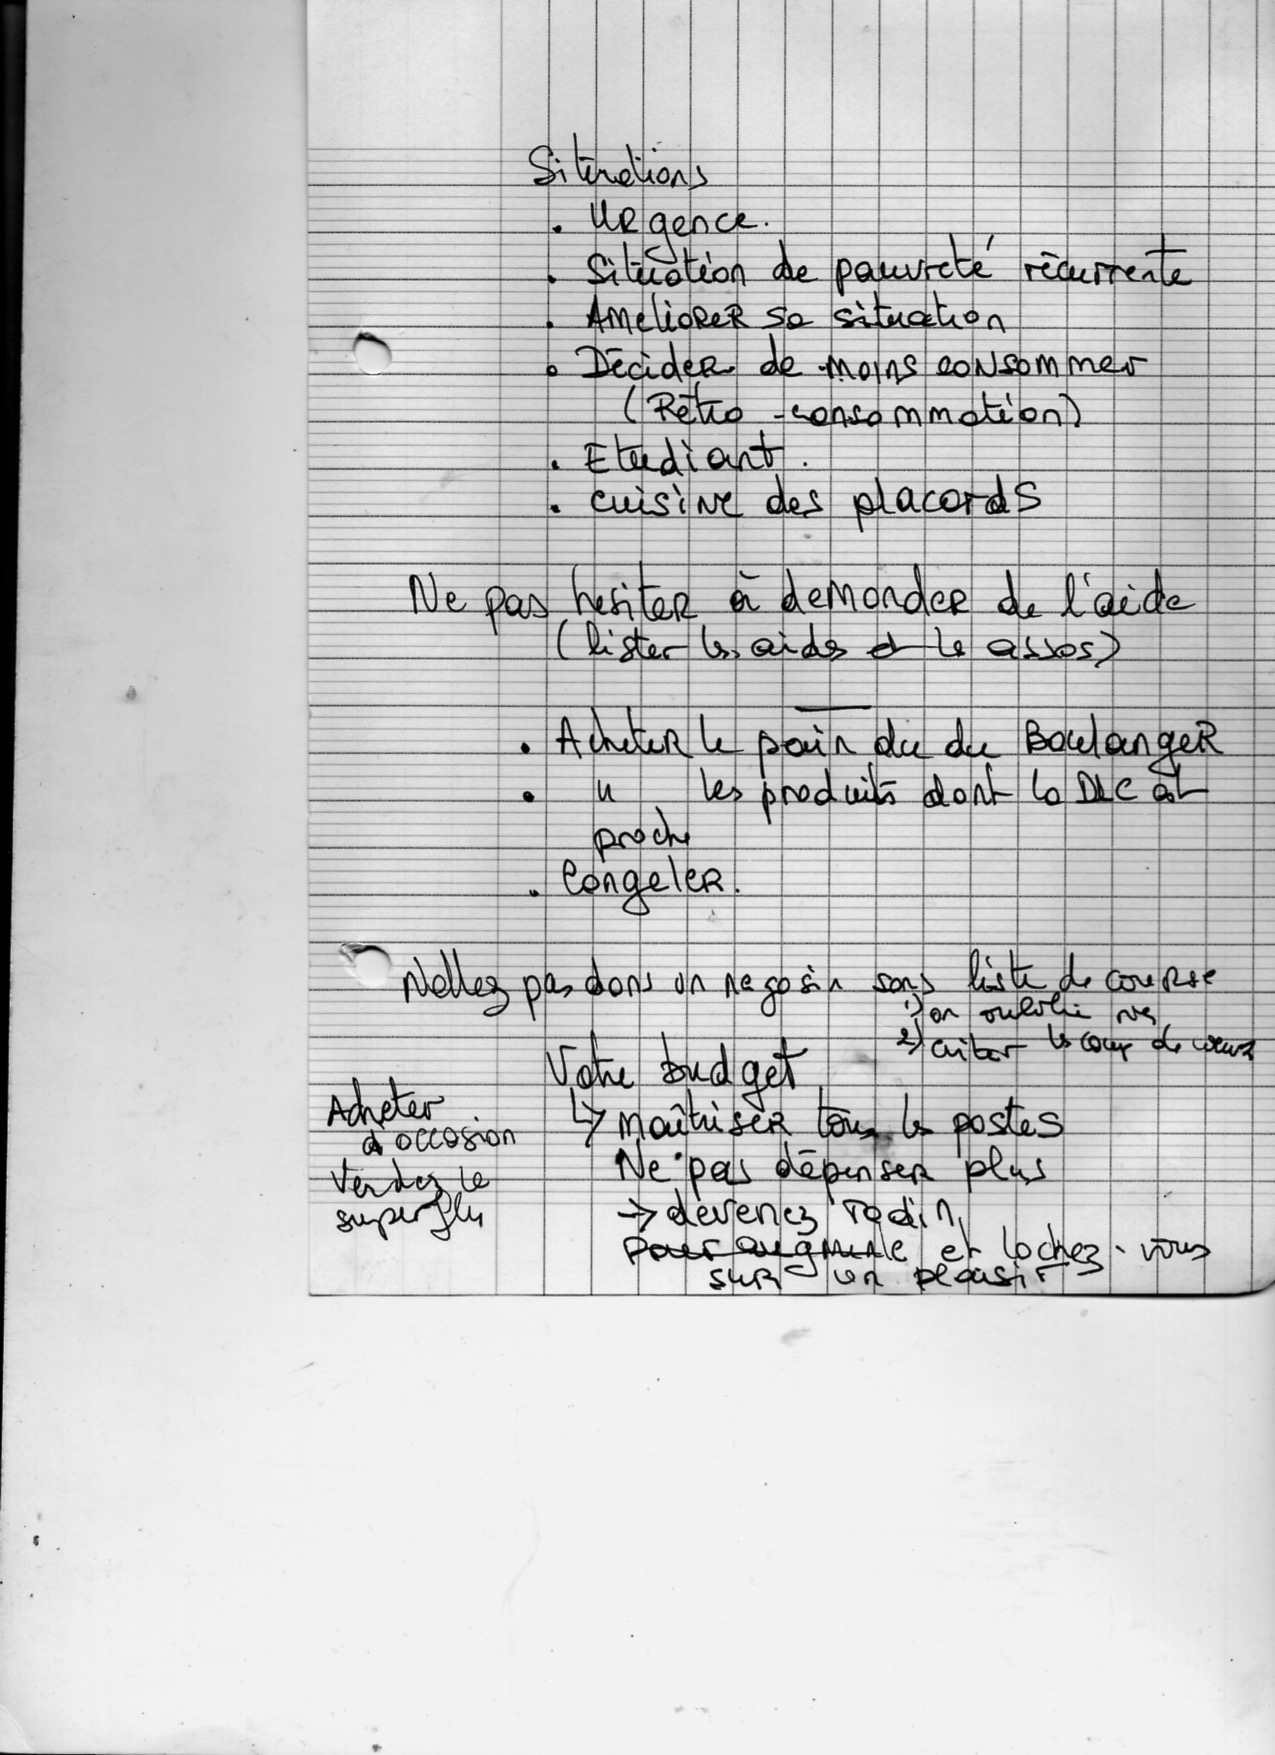 Situations
. Urgence.
. Situation de pauvreté récurrente
. Améliorer sa situation
. Décider de moins consommer
(Rétro-consommation)
. Etudiant.
. cuisine des placards
Ne pas hesiter à demander de l'aide
(lister les aides et les assos)
. Acheter le pain du du Boulanger
. " les produits dont la DLC est
proche
. Congeler.
N'allez pas dans un magasin sans liste de course
1) on oublie
2) éviter les coup de coeur
Votre budget
↳ maîtriser tous les postes
Ne pas dépenser plus
→ devenez radin
et lachez-vous
sur un plaisir
Acheter
d'occasion
Vendez le
superflu